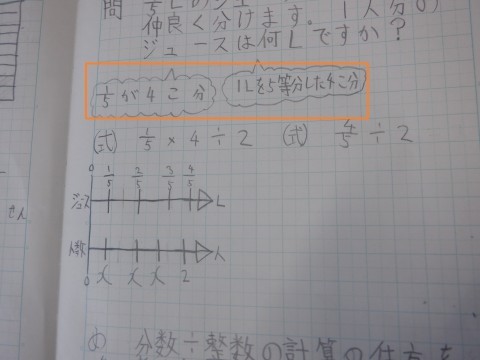 問
5Lのジュ
仲良く分けます。1人分の
ジュースは何Lですか?
1/5が4こ分
1Lを5等分した4こ分
(式) 1/5 × 4 ÷ 2
(式) 4/5 ÷ 2
0 1/5 2/5 3/5 4/5
ジュース L
人数 人
0 2
さん
め 分数÷整数の計算の仕方を